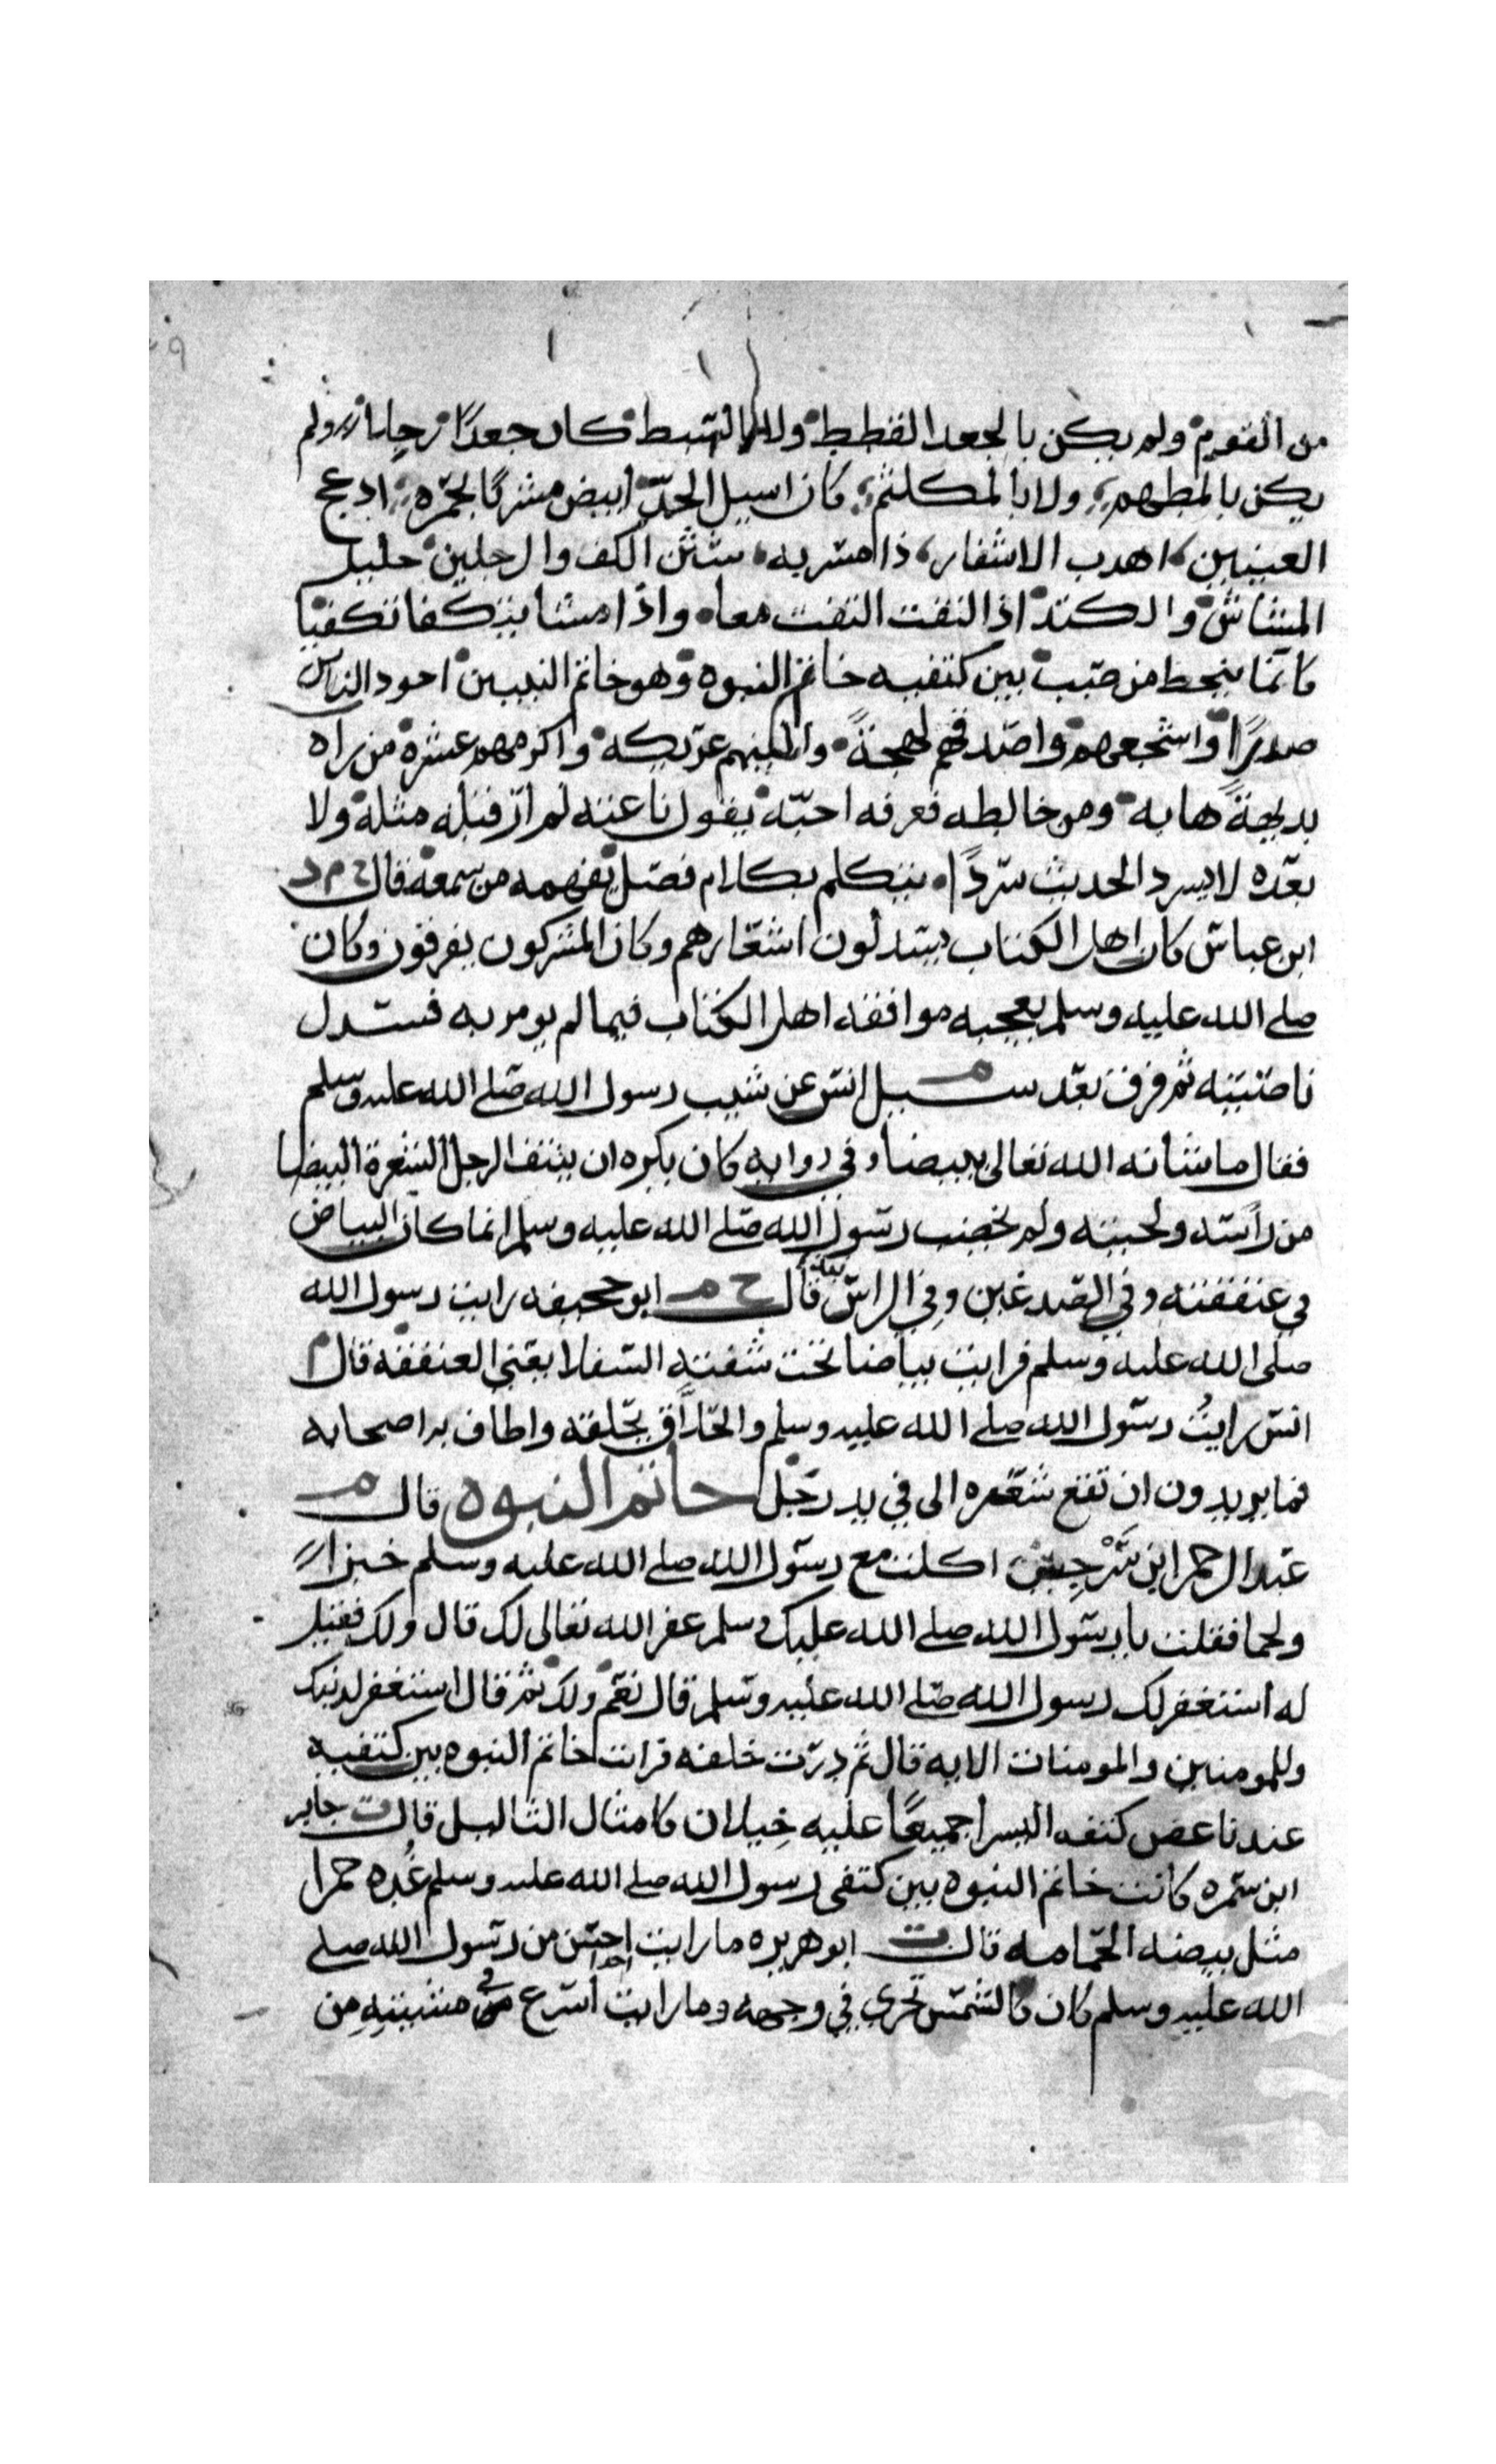 من القوم ولم يكن بالجعد القطط ولا بالسبط كان جعدًا رجلا ولم
يكن بالمطهم ولا بالمكلثم كان اسيل الخدّ ابيض مشربًا بحمّره ادعج
العينين اهدب الاشفار ذا مسربه شثن الكف والرجلين جليل
المشاش والكتد اذا التفت التفت معا واذا مشا يتكفا تكفيا
كانما ينحط من صبب بين كتفيه خاتم النبوه وهو خاتم النبيين اجود الناس
صدرًا واشجعهم واصدقهم لهجةً والينهم عريكه واكرمهم عشرة من راه
بديهةً هابه ومن خالطه فعرفه احبّه يقول ناعته لم ار قبله مثله ولا
بعده لا يسرد الحديث سردًا يتكلم بكلام فصل يفهمه من سمعه قال خ م د
ابن عباس كان اهل الكتاب يسدلون اشعارهم وكان المشركون يفرقون وكان
صلى الله عليه وسلم يعجبه موافقه اهل الكتاب فيما لم يومر به فسدل
ناصيته ثم فرق بعد م سيل انس عن شيب رسول الله صلى الله عليه وسلم
فقال ما شانه الله تعالى ببيضا وفي روايه كان يكره ان ينتف الرجل الشعرة البيضا
من راسه ولحيته ولم يخضب رسول الله صلى الله عليه وسلم انما كان البياض
في عنفقته وفي الصدغين وفي الراس نبذ قال خ م ابو جحيفه رايت رسول الله
صلى الله عليه وسلم فرايت بياضا تحت شفته السفلا يعني العنفقه قال م
انس رايتُ رسول الله صلى الله عليه وسلم والحلّاق يحلقه واطاف به اصحابه
فما يريدون ان تقع شعره الى في يد رجل خاتم النبوه قال م
عبد الرحمر ابن سَرْجِس اكلت مع رسول الله صلى الله عليه وسلم خبزاً
ولحما فقلت يا رسول الله صلى الله عليك وسلم غفر الله تعالى لك قال ولك فقيل
له استغفر لك رسول الله صلى الله عليه وسلم قال نعم ولك ثم قال استغفر لذنبك
وللمومنين والمومنات الايه قال ثم درت خلفه فرايت خاتم النبوه بين كتفيه
عند ناغض كتفه اليسرا جميعًا عليه خِيلان كامثال الثاليل قال ت جابر
ابن سمره كانت خاتم النبوه بين كتفي رسول الله صلى الله عليه وسلم غُده حمرا
مثل بيضه الحمامه قال ت ابو هريره ما رايت احدا احسن من رسول الله صلى
الله عليه وسلم كان كالشمس تجري في وجهه وما رايت اسرع في مشيتهِ من